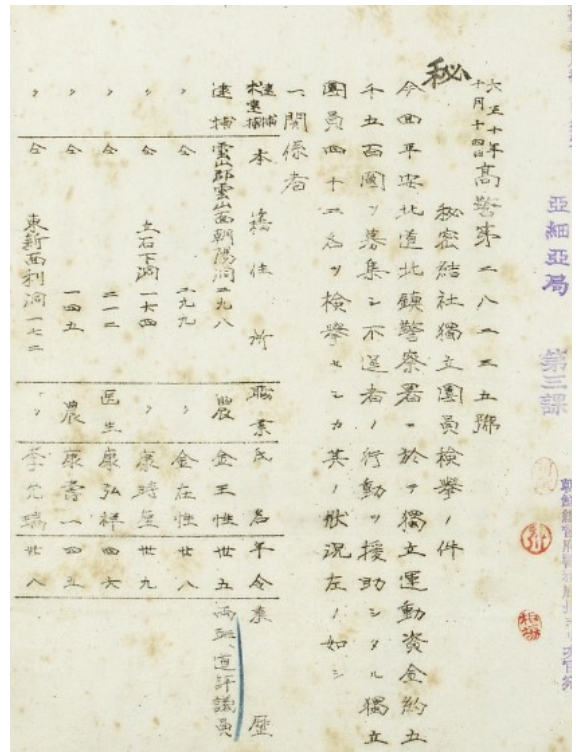 亞細亞局 第三課
秘
大正十年
十月十四日 高警第二八二三五號
秘密結社獨立團員檢擧ノ件
今回平安北道北鎭警察署ニ於テ獨立運動資金約五
千五百圓ヲ募集シ不逞者ノ行動ヲ援助シタル獨立
團員四十二名ヲ檢擧セシカ其ノ狀況左ノ如シ
一、關係者
逮捕 未逮捕 本籍住所 職業 氏名 年令 來歷
逮捕 雲山郡雲山面朝陽洞二九八 農 金王性 卅五 面民、道評議員
〃 仝 二九九 〃 金在性 廿八
〃 仝 立石下洞一六四 〃 康時 卅九
〃 仝 二一二 医生 康弘祥 四六
〃 仝 一四五 農 康壽一 四五
〃 仝 東新面利洞一七二 〃 李允瑞 廿八